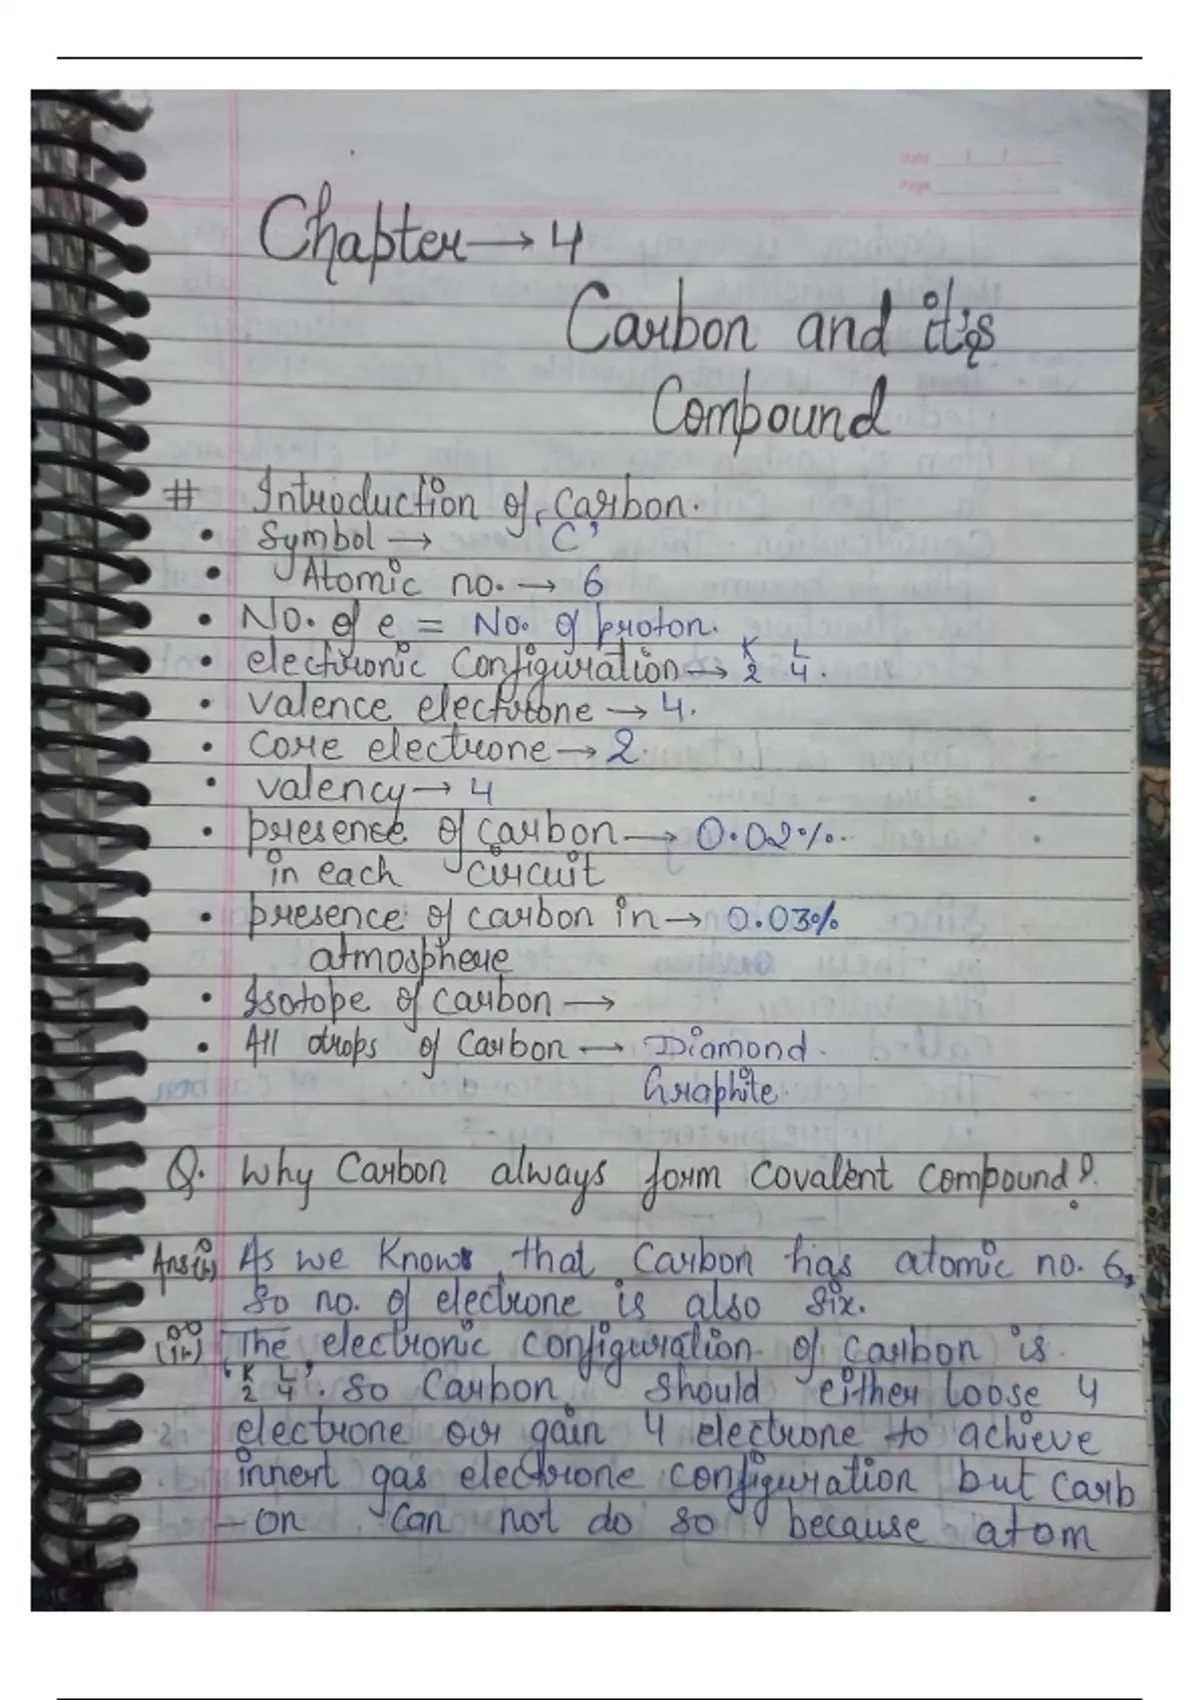 Date / /
Page
Chapter → 4
Carbon and it's
Compound
# Introduction of carbon.
• Symbol → ‘C’
• Atomic no. → 6
• No. of e = No. of proton.
• electronic Configuration → K L
2 4.
• valence electrone → 4.
• core electrone → 2.
• valency → 4
• presence of carbon → 0.02%.
in each circuit
• presence of carbon in → 0.03%
atmosphere
• Isotope of carbon →
• All drops of Carbon → Diamond.
Graphite.
Q. Why Carbon always form covalent compound?
Ans(i) As we Know, that Carbon has atomic no. 6,
So no. of electrone is also six.
(ii) The electronic configuration of carbon is
‘K L’
2 4. so Carbon should either loose 4
electrone or gain 4 electrone to achieve
innert gas electrone configuration but carb
-on can not do so because atom